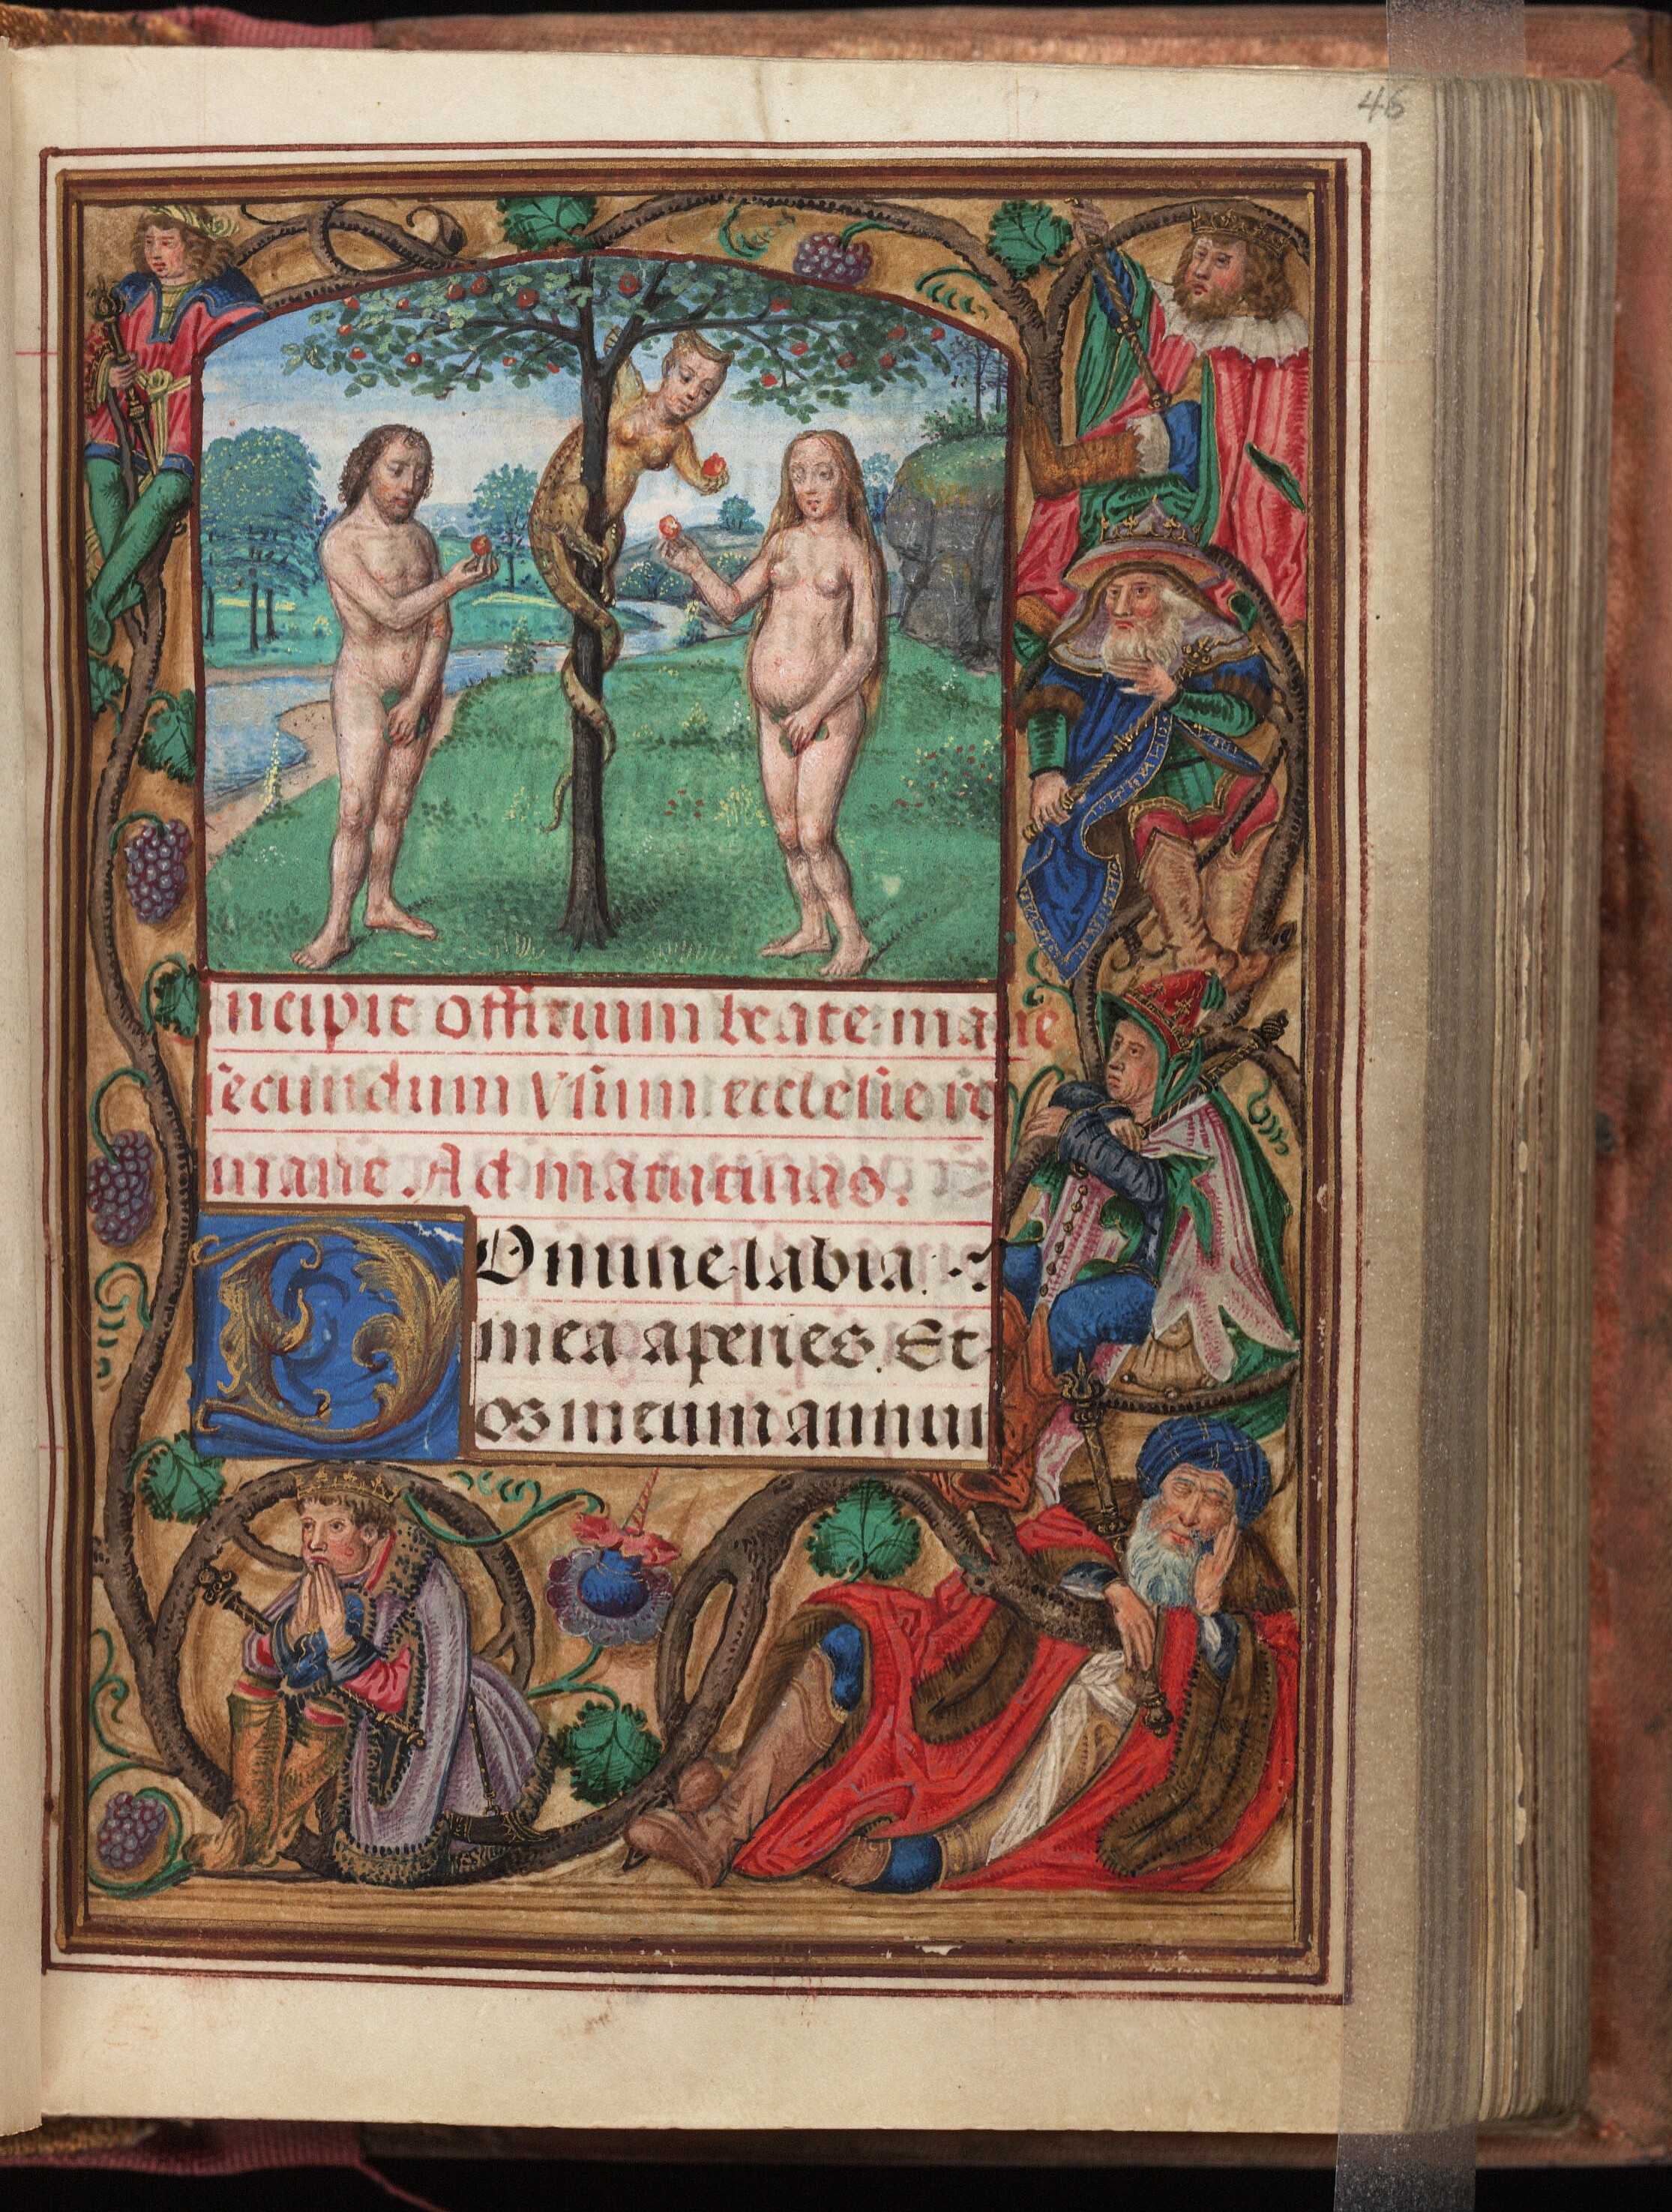 46
Incipit offitium beate marie
secundum Usum ecclesie ro
mane Ad matutinas.
Domine labia
mea aperies. Et
os meum annun